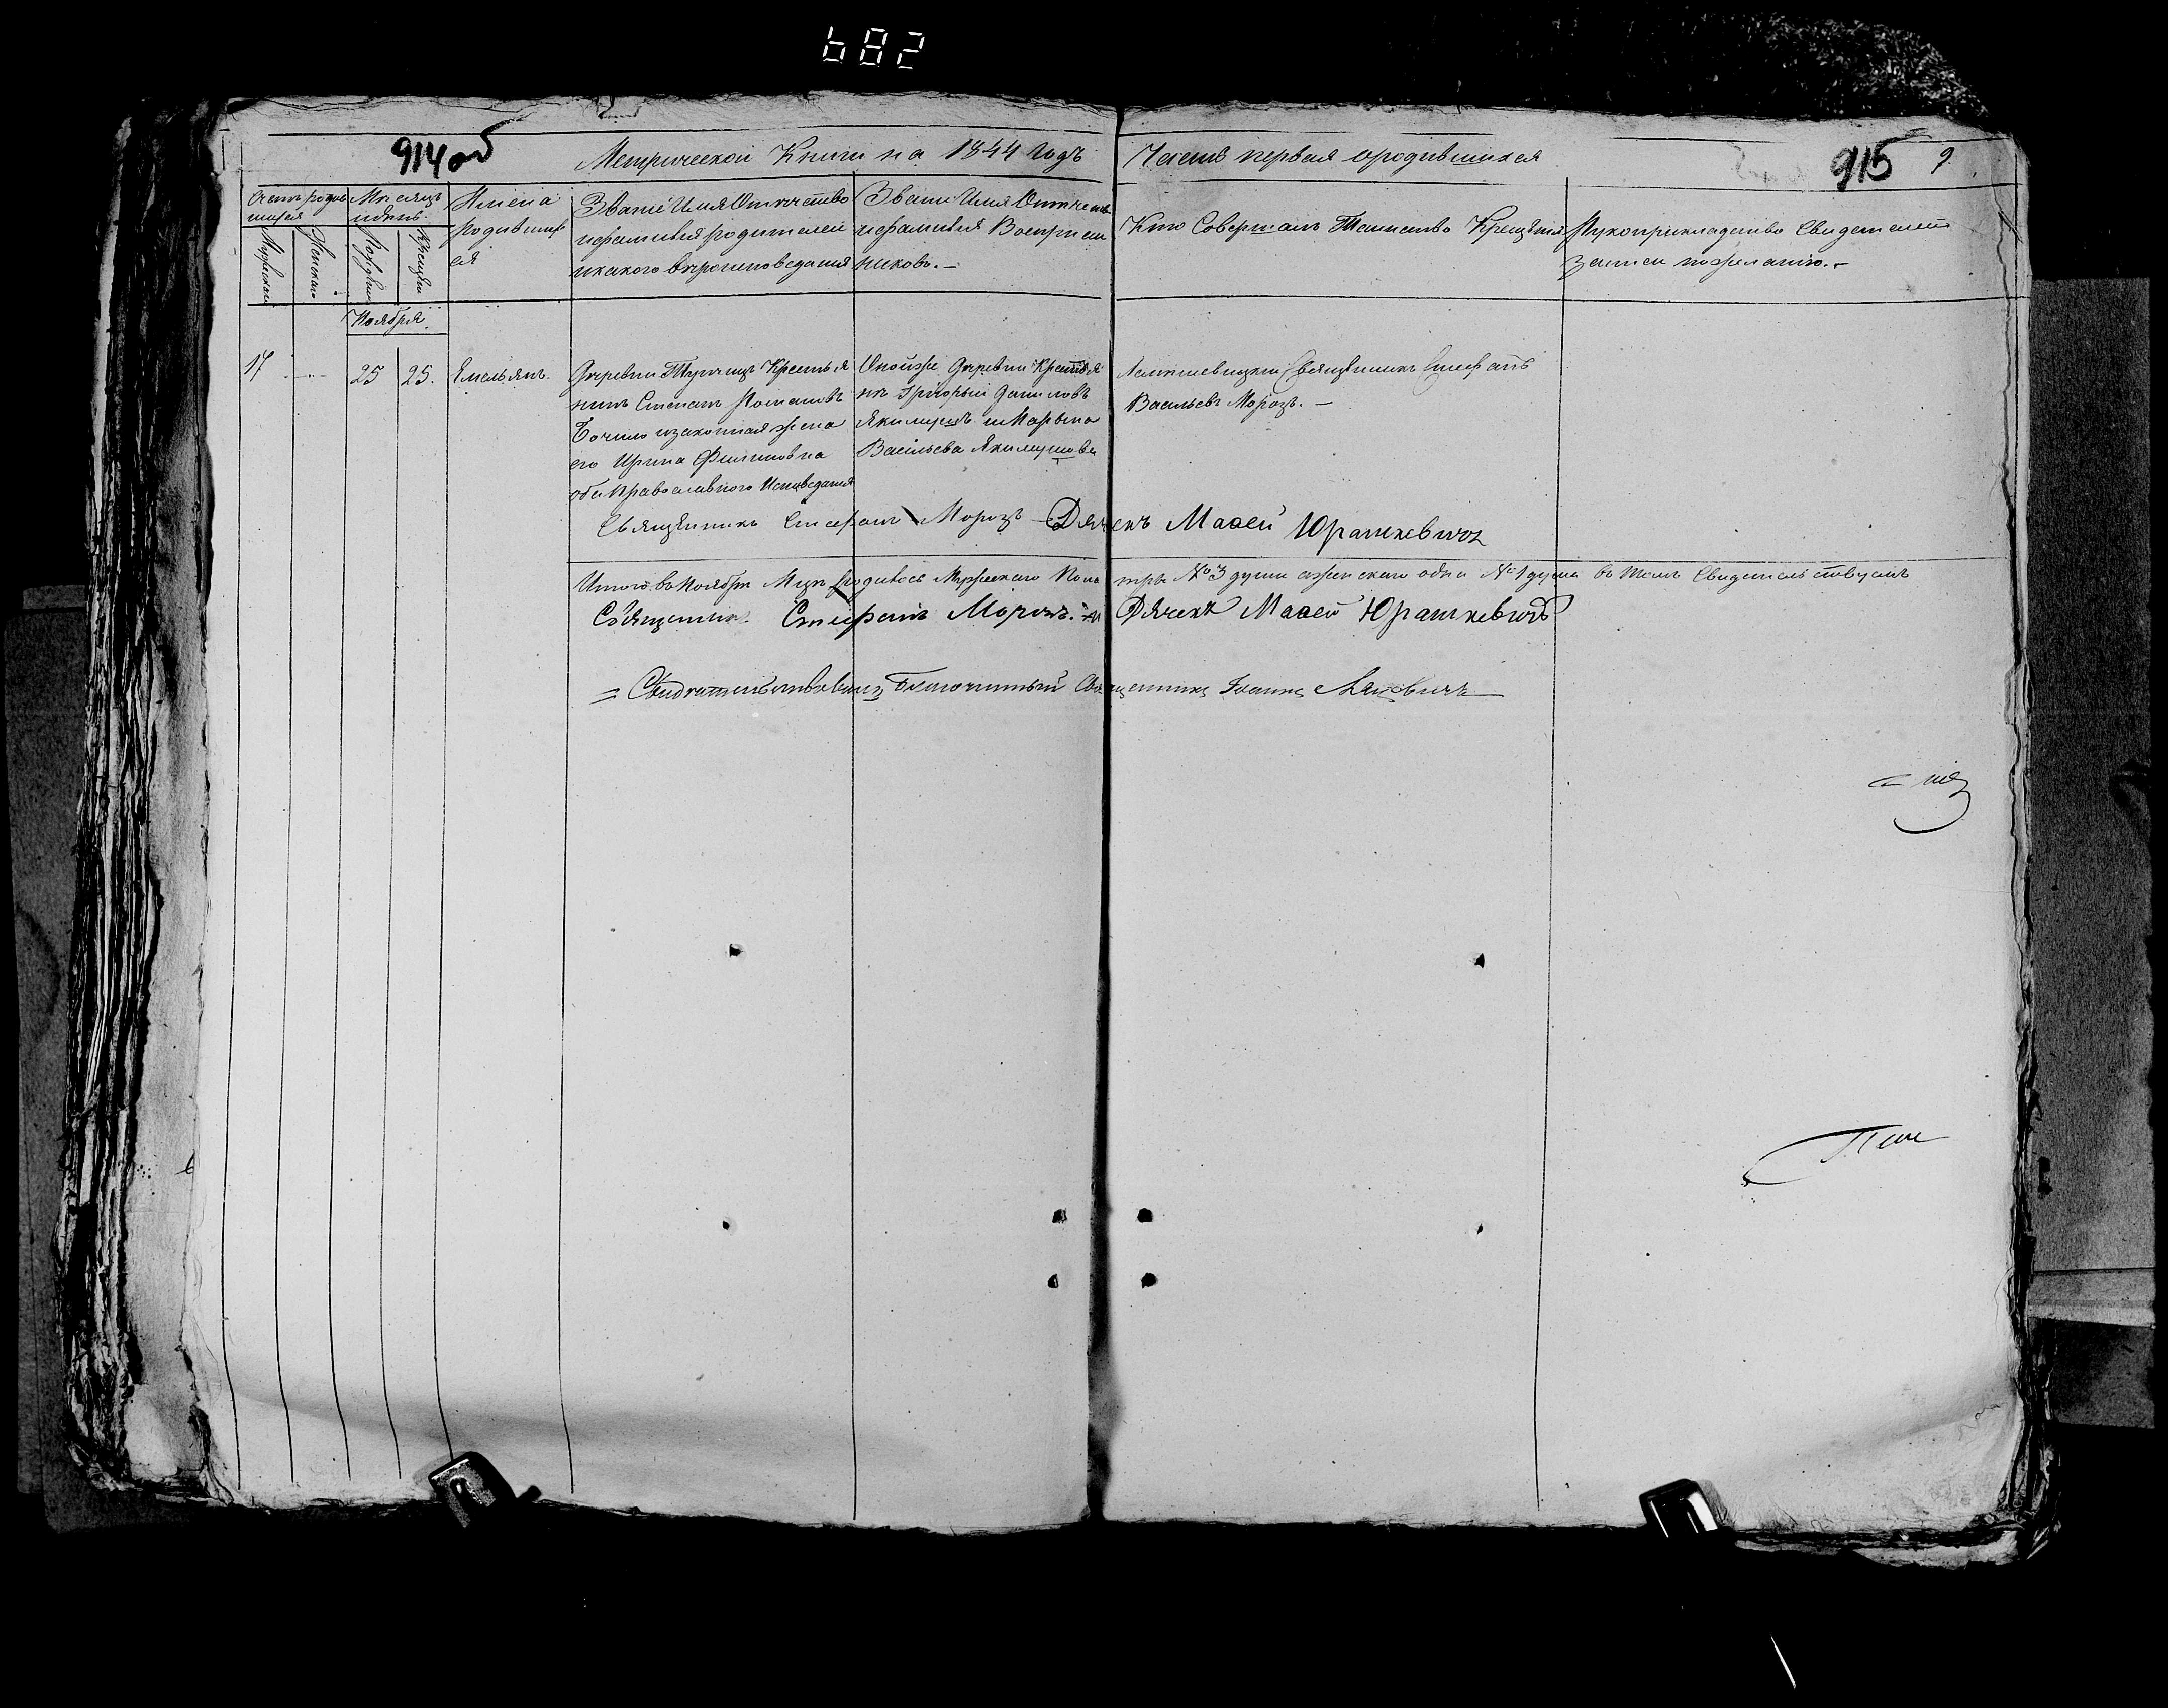 682
914 об
Метрической Книги на 1844 Годъ
Часть первая о родившихся
915
9.
Счетъ родив
шихся
Мѣсяцъ
и день
Имена
родивших
ся
Мужеска
Женска
Рожденія
Крещенія
Званіе Имя Отчество
и фамилія родителей
и какого вѣроисповеданія
Званіе Имя Отчеств
и фамилія Воспріем
никовъ. —
Кто Совершалъ Таинство Крещенія
Рукоприкладство Свидетелей
Записи по желанію. —
Ноября.
17
25
25.
Емельянъ.
Деревни Туричицъ Крестья
нинъ Степанъ Романовъ
и законная жена
его Ирина Филиповна
оба Православного Исповеданія
Оной же Деревни Крестья
нъ Григорый Даниловъ
и Марьяна
Васильева
Священникъ Стефанъ
Васильевъ Морозъ. —
Священникъ Стефанъ Морозъ Дьячекъ Мафей Юрашкевичъ
Итого въ Ноябрѣ Мцѣ родилось Мужескаго Пола три № 3 души женскаго одна № 1 душа въ томъ Свидетельствуемъ
Священникъ Стефанъ Морозъ. — Дьячекъ Мафей Юрашкевичъ
= Свидѣтельствовалъ Благочинный Священникъ Іоаннъ